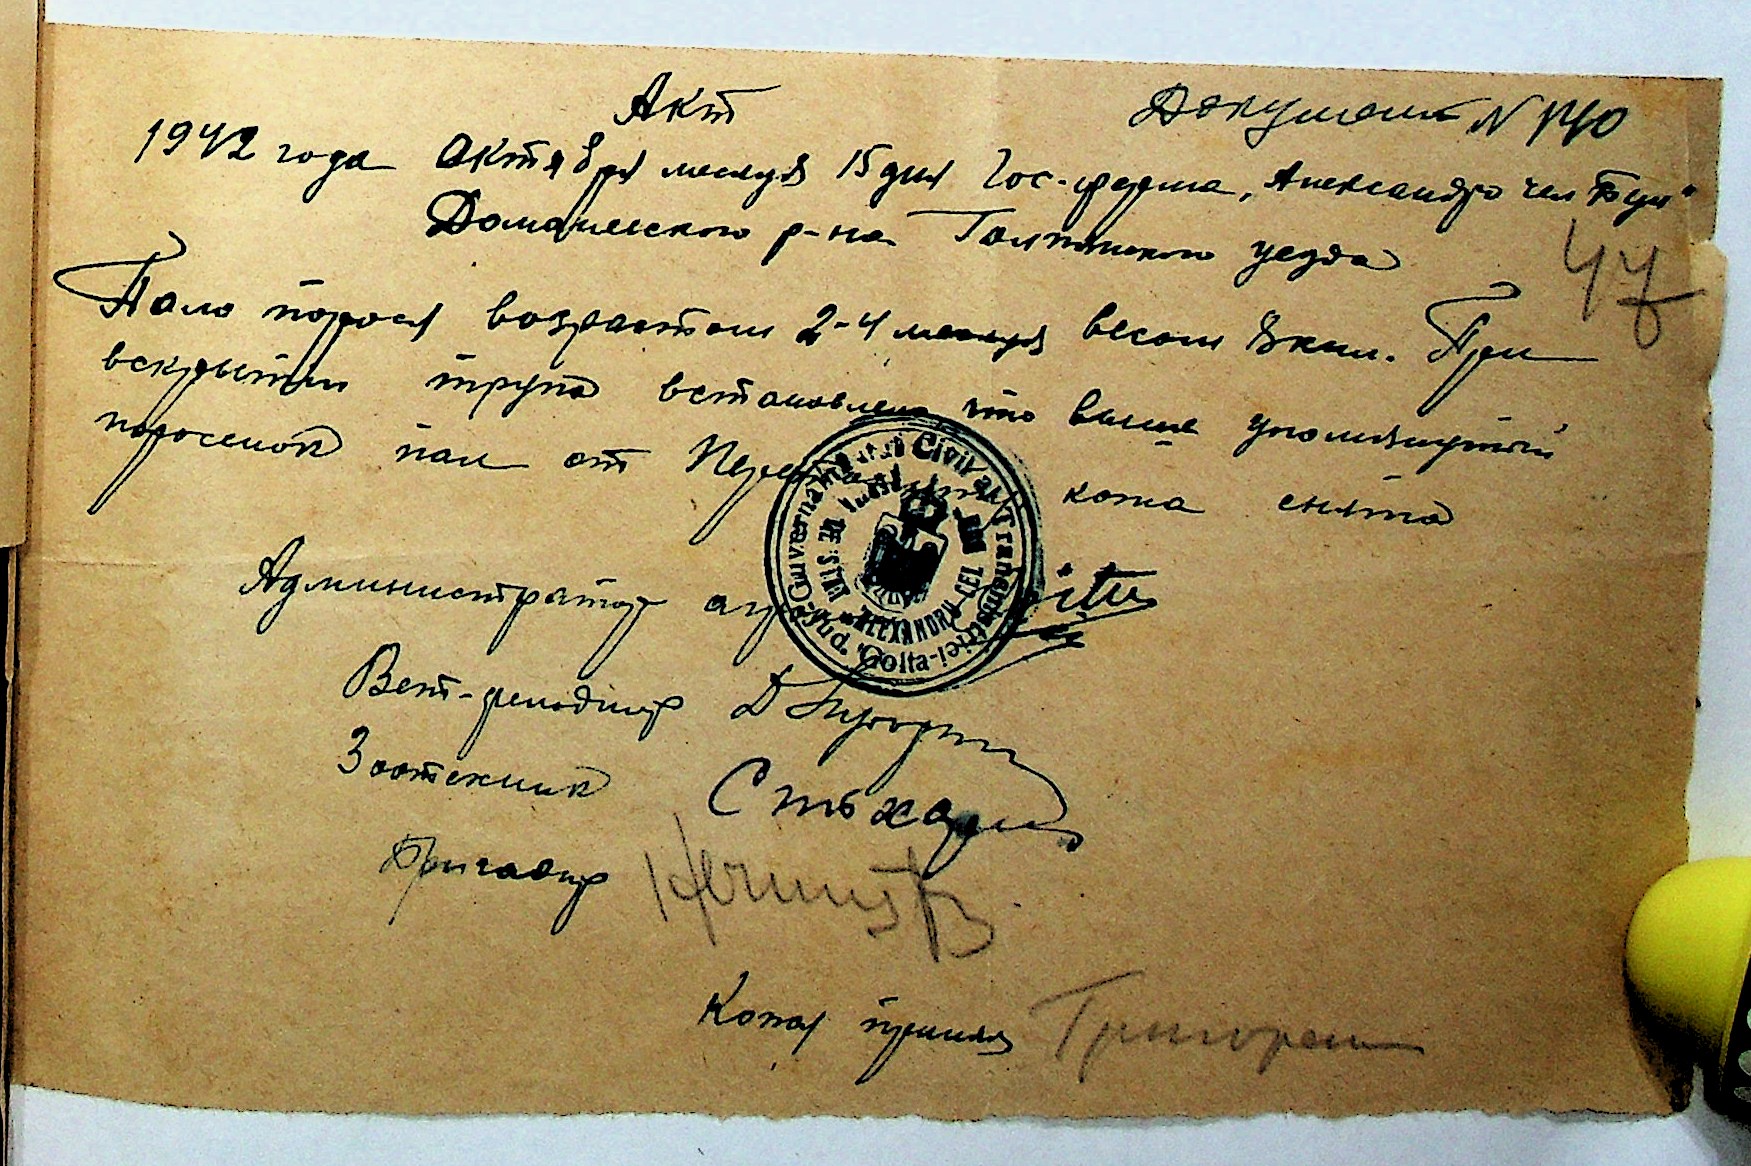 Акт
Документ N 140
1942 года октября месяца 15 дня Гос-ферма „Александро чел Бун"
Доманевского р-на Голтянского уезда
47
Пало порося возрастом 2-4 месяця весом 8 кил. При
вскрытии трупа встановлено что выше упомянутый
поросенок пал от кожа снята
Guvernamantul Civil al Transnistriei
Jud. Golta
ALEXANDRU CEL BUN
Администратор агр
Вет-фельдшер
Зоотехник
Бригадир
Кожу принял Григорен